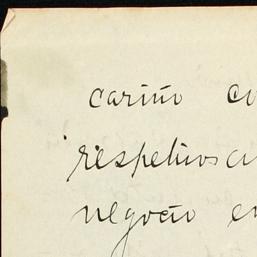 cariño co
respetuosa
negocio en